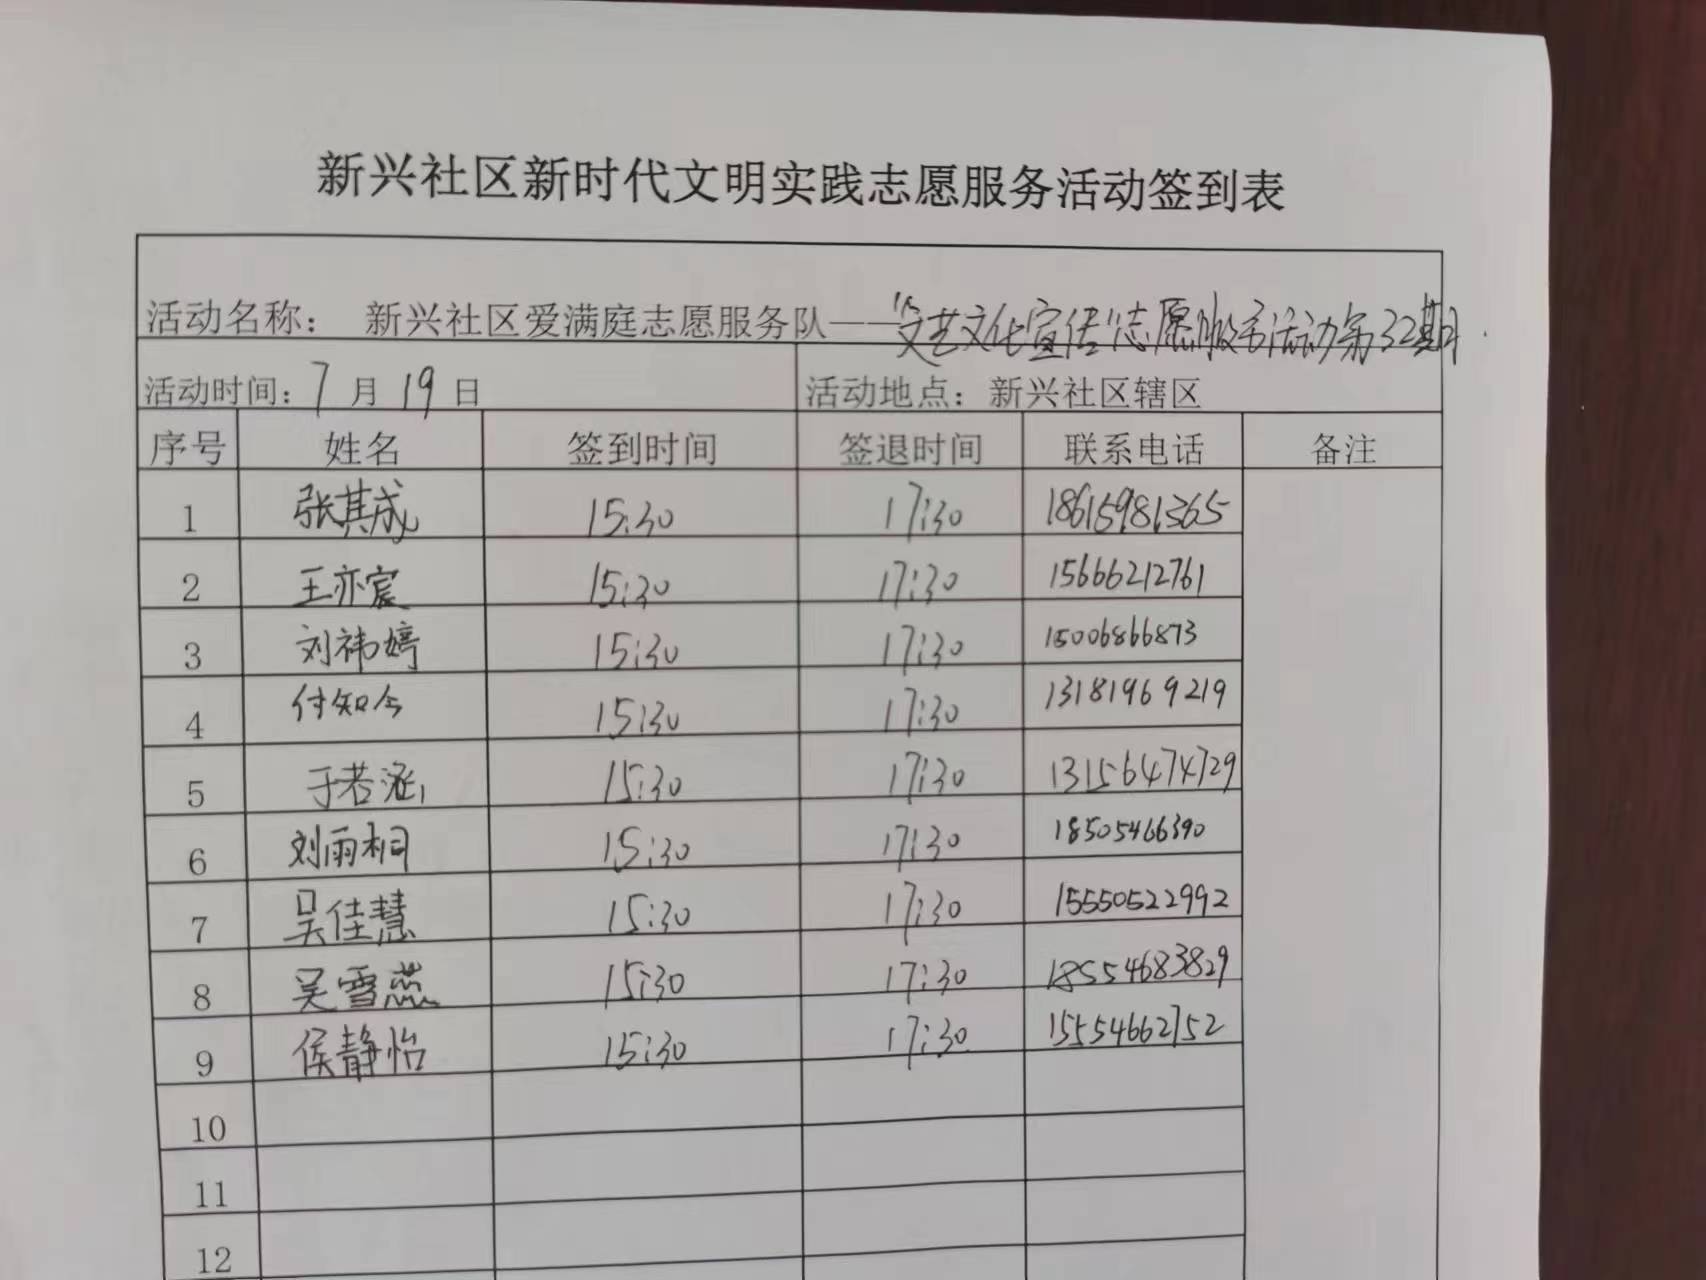 新兴社区新时代文明实践志愿服务活动签到表
活动名称： 新兴社区爱满庭志愿服务队——“文艺文化宣传”志愿服务活动第32期
活动时间：7月19日 活动地点：新兴社区辖区
序号 姓名 签到时间 签退时间 联系电话 备注
1 张其成 15:30 17:30 18615981365
2 王亦宸 15:30 17:30 15666212761
3 刘祎婷 15:30 17:30 15006866873
4 付知今 15:30 17:30 13181969219
5 于若涵 15:30 17:30 13156474729
6 刘雨桐 15:30 17:30 18505466390
7 吴佳慧 15:30 17:30 15550522992
8 吴雪蕊 15:30 17:30 18554683829
9 侯静怡 15:30 17:30 15554662752
10
11
12